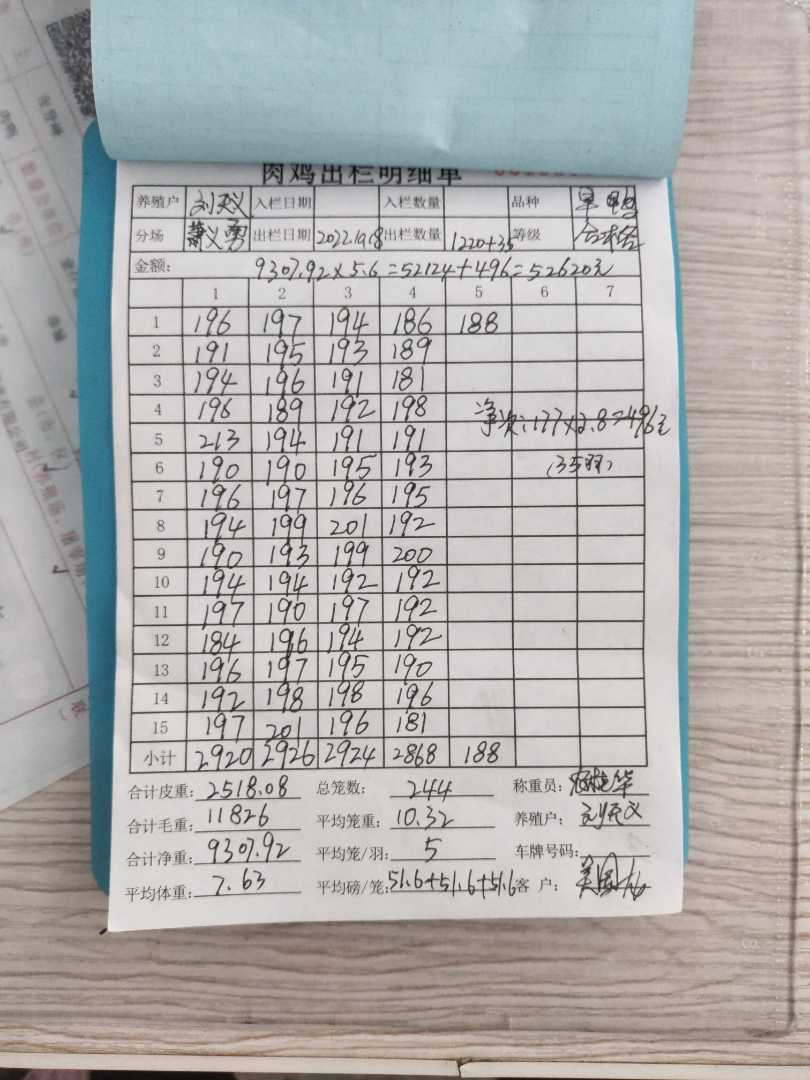 肉鸡出栏明细单
养殖户 刘天义 入栏日期 入栏数量 品种
分场 萧义勇 出栏日期 2022.10.18 出栏数量 1220+35 等级 合格
金额: 9307.92×5.6=52124+496=52620元
1 2 3 4 5 6 7
1 196 197 194 186 188
2 191 195 193 189
3 194 196 191 181
4 196 189 192 198 净次:177×2.8=496元
5 213 194 191 191
6 190 190 195 193 (35羽)
7 196 197 196 195
8 194 199 201 192
9 190 193 199 200
10 194 194 192 192
11 197 190 197 192
12 184 196 194 192
13 196 197 195 190
14 192 198 198 196
15 197 201 196 181
小计 2920 2926 2924 2868 188
合计皮重: 2518.08 总笼数: 244 称重员:
合计毛重: 11826 平均笼重: 10.32 养殖户: 刘天义
合计净重: 9307.92 平均笼/羽: 5 车牌号码:
平均体重: 7.63 平均磅/笼: 51.6+51.6+51.6 客 户: